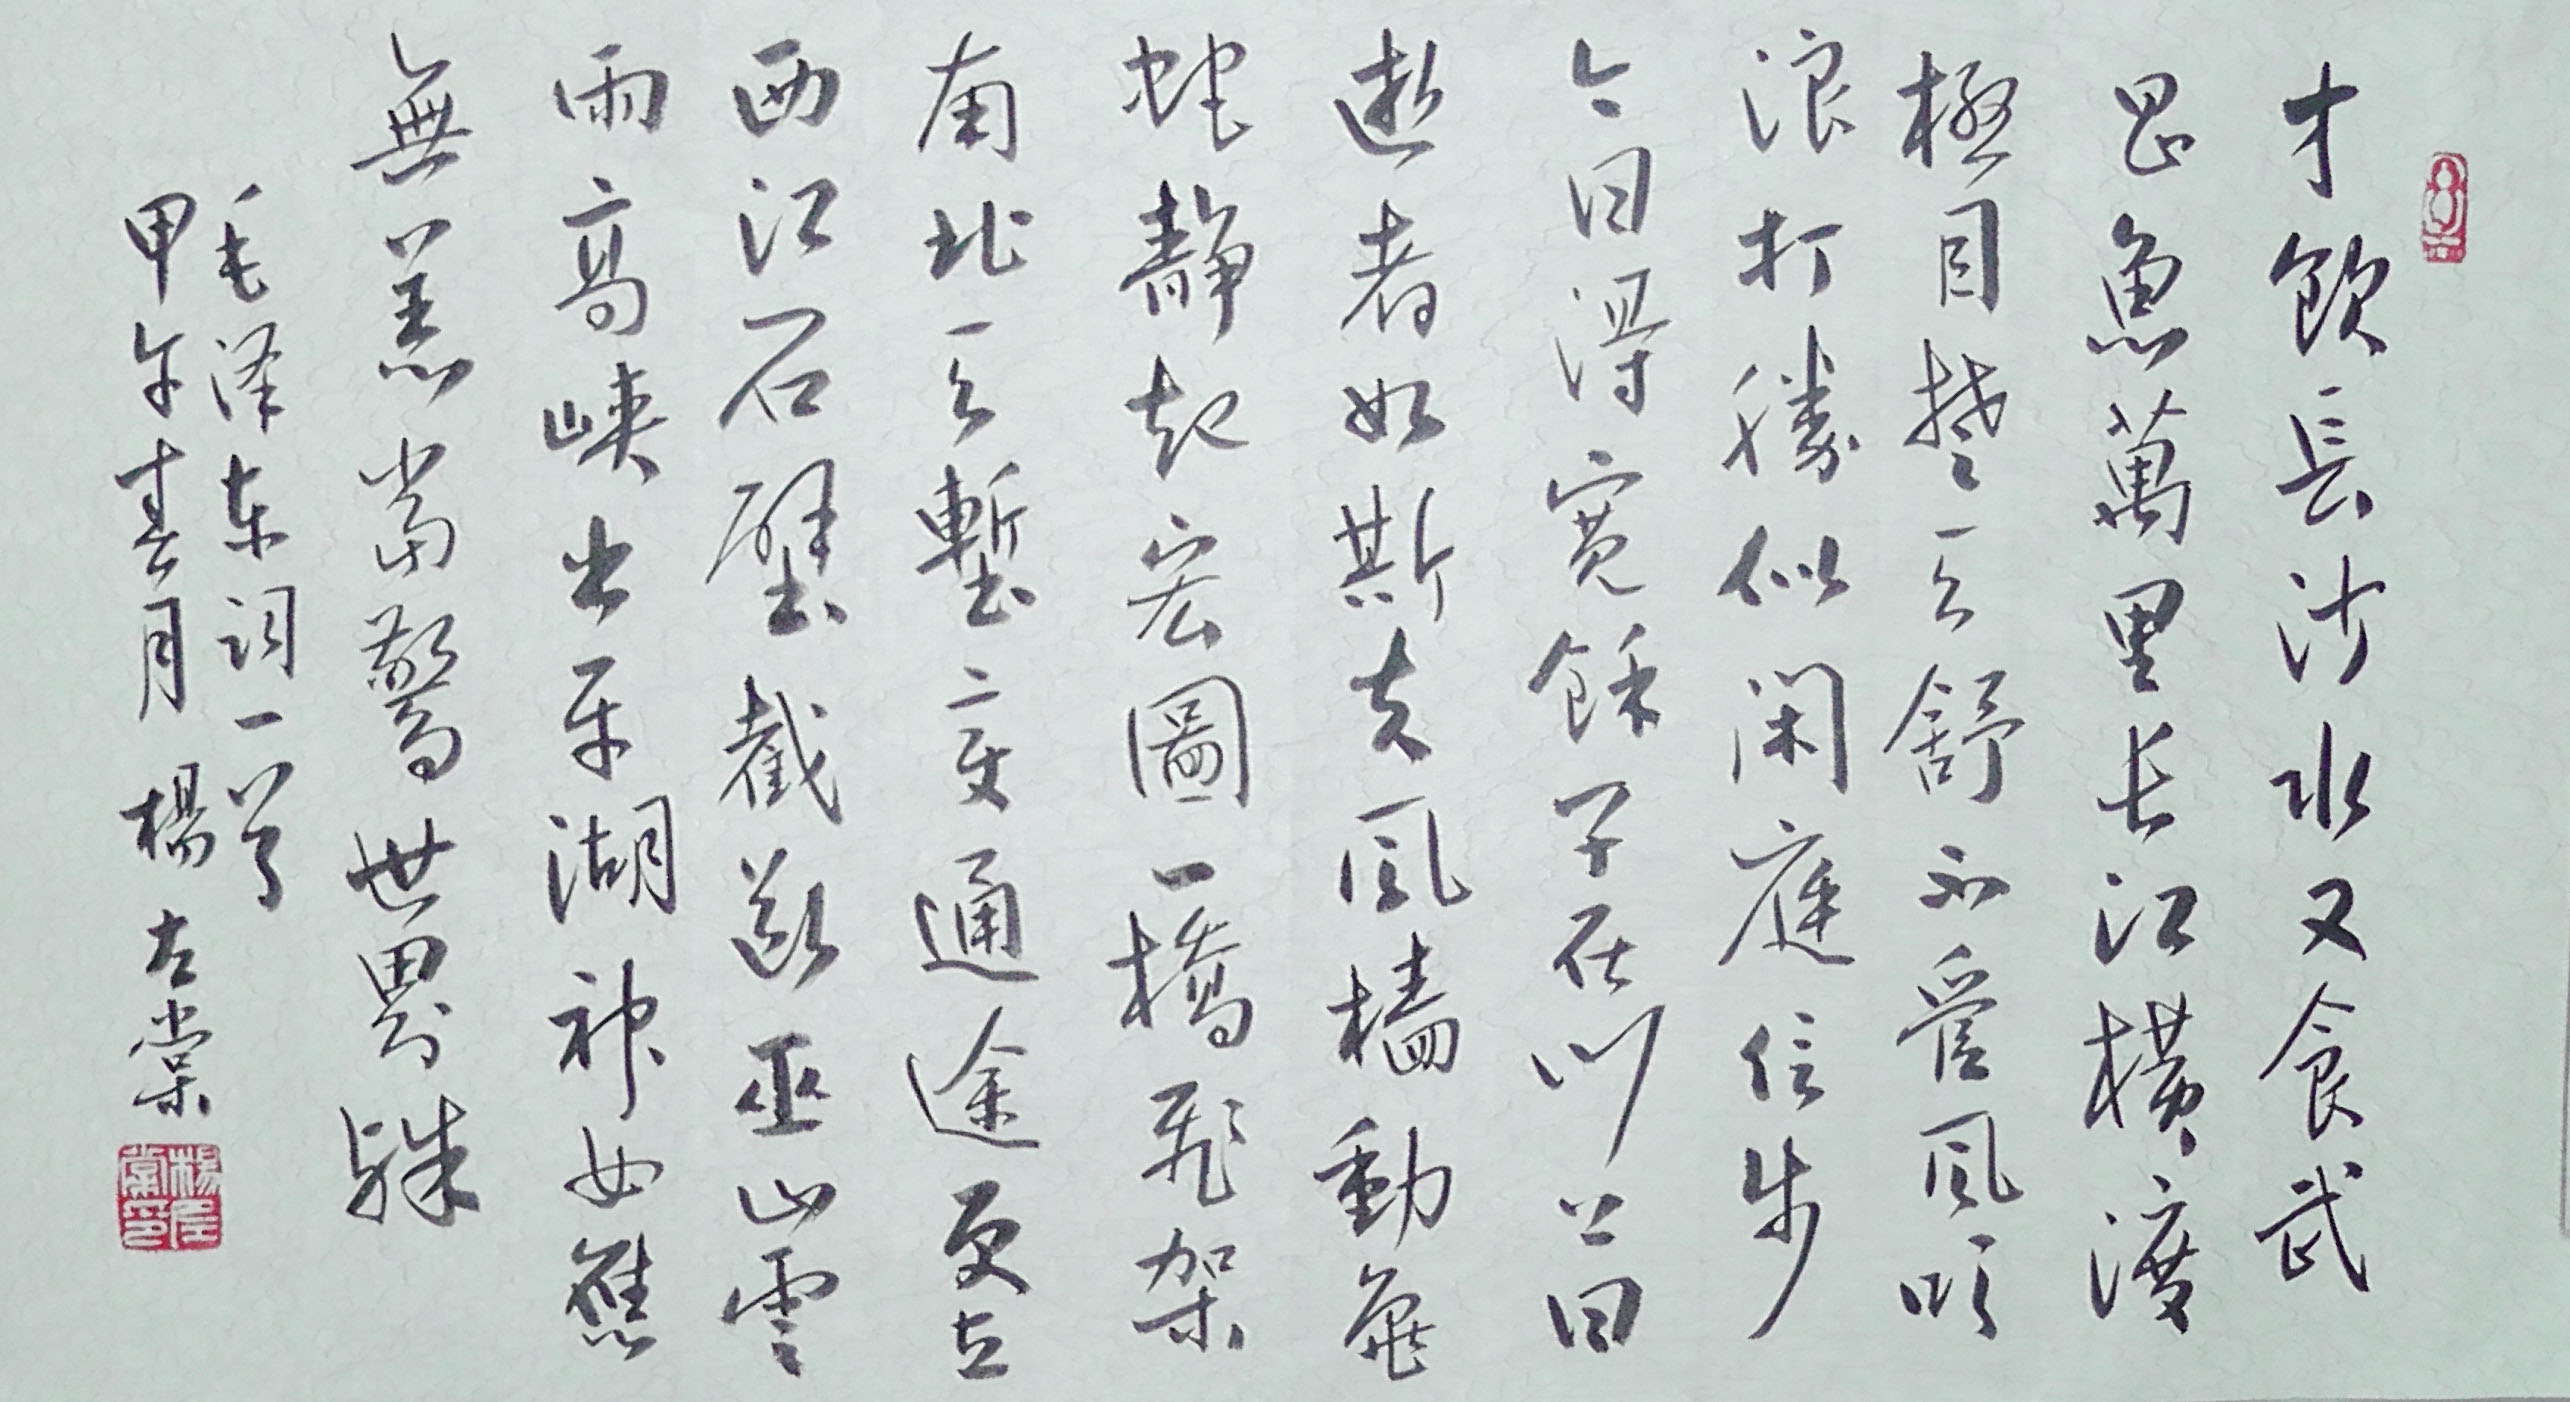 才飲長沙水又食武
昌魚萬里长江橫渡
極目楚天舒不管風吹
浪打勝似闲庭信步
今日得寬餘子在川上曰
逝者如斯夫風檣動龜
蛇靜起宏圖一橋飛架
南北天塹變通途更立
西江石壁截斷巫山雲
雨高峽出平湖神女應
無恙當驚世界殊
毛泽东词一首
甲午春月楊左棠
楊左棠印